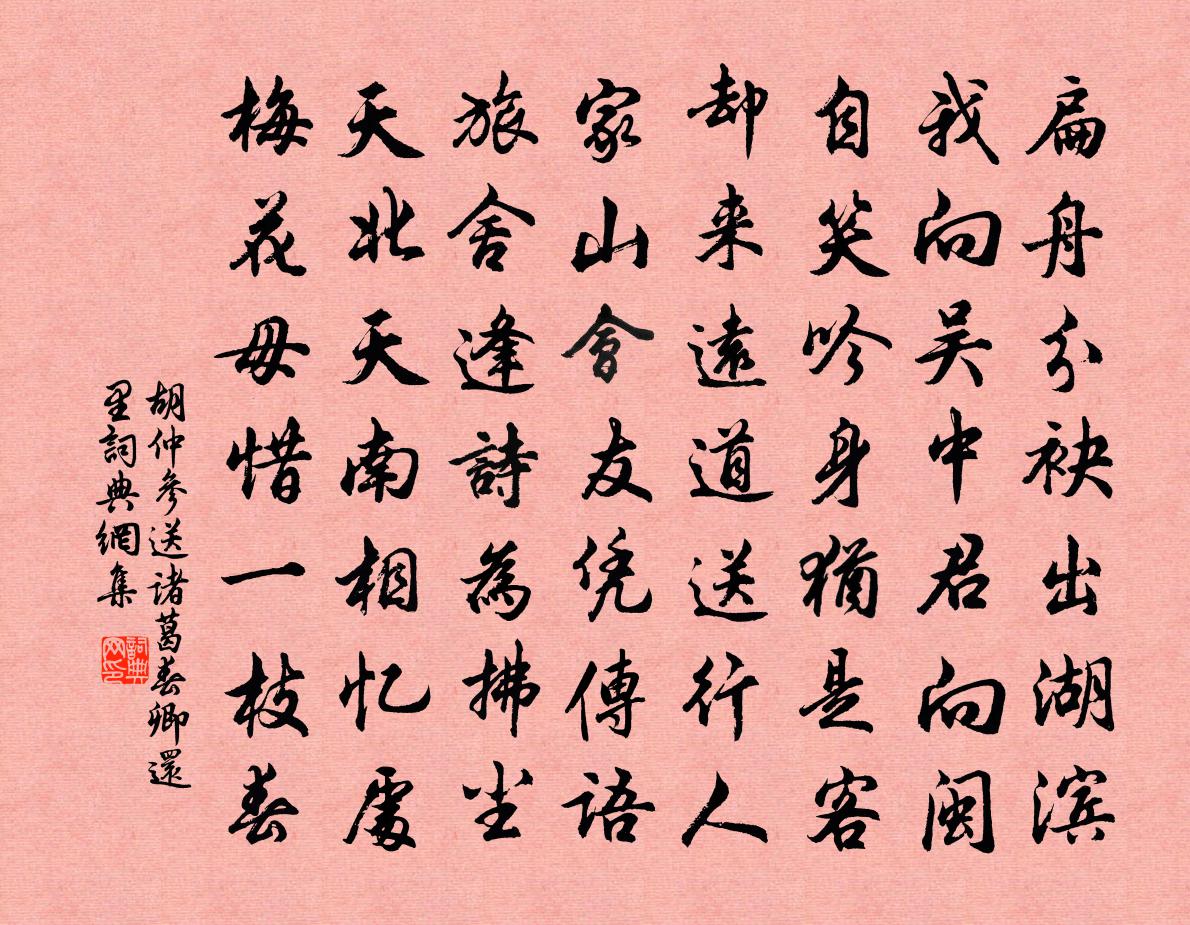 扁舟分袂出湖滨
我向吴中君向闽
自笑吟身犹是客
却来远道送行人
家山會友凭傳語
旅舍逢詩為拂尘
天北天南相忆處
梅花毋惜一枝春
胡仲參送诸葛春卿還
里詞典網集
詞典网印